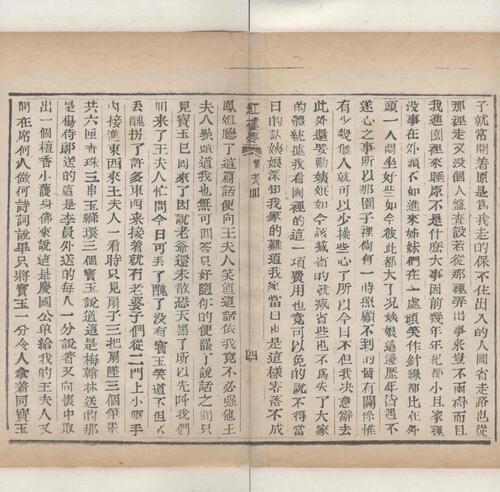 子就常開着原是爲我走的保不住出入的人圖省走路也從
那裡走又沒個人盤查設若從那裡弄出事來豈不兩碍而且
我進園裡來睡原不是什麽大事因前幾年年紀都小且家裡
沒事在外頭不如進來姊妹們在一處頑笑作針線都比在外
頭一人悶坐好些如今彼此都大了况姨娘這邊歷年皆遇不
遂心之事所以那園子裡倘有一時照顧不到的皆有關係惟
有少幾個人就可以少操些心了所以今日不但我决意辭去
此外還要勸姨娘如今該减省的就减省些也不爲失了大家
的體統據我看園裡的這一項費用也竟可以免的說不得當
日的話姨娘深知我家的難道我家當日也是這樣零落不成
紅樓夢
四
鳳姐聽了這篇話便向王夫人笑道這話依我竟不必强他王
夫人點頭道我也無可回答只好隨你的便罷了說話之間只
見寶玉已回來了因說老爺還未散恐天黑了所以先叫我們
回來了王夫人忙問今日可丢了醜了沒有寶玉笑道不但不
丢醜拐了許多東西來接着就有老婆子們從二門上小厮手
内接進東西來王夫人一看時只見扇子三把扇墜三個筆墨
共六匣香珠三串玉縧環三個寶玉說道這是梅翰林送的那
是楊侍郎送的這是李員外送的每人一分說着又向懷中取
出一個檀香小護身佛來說這是慶國公單給我的王夫人又
問在席何人做何詩詞說畢只將寶玉一分令人拿着同寶玉